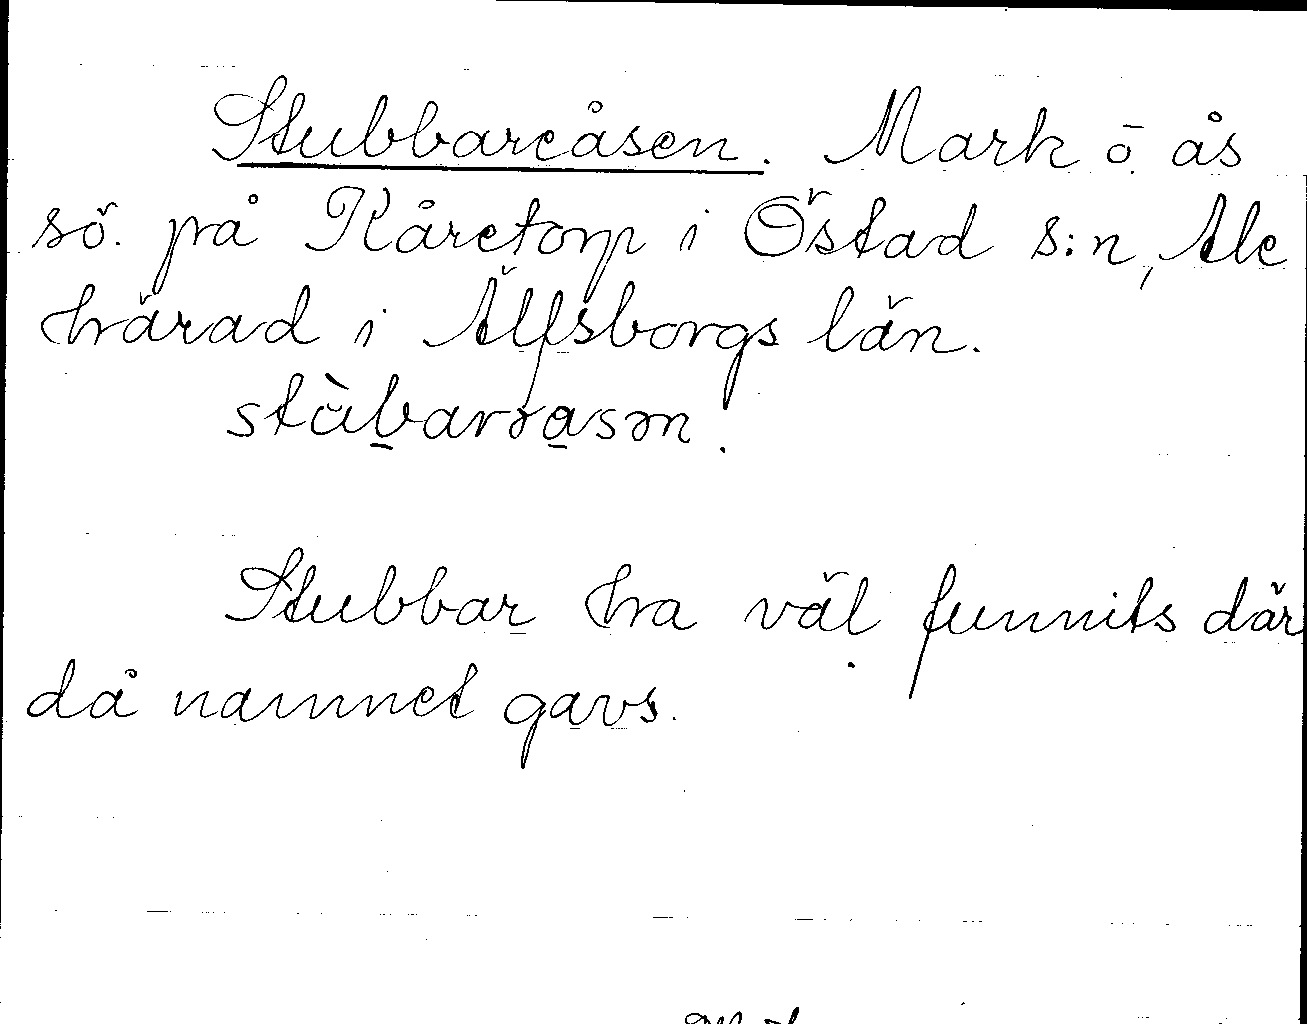 Stubbareåsen. Mark o ås
sö. på Kåretorp i Östad s:n, Ale
härad i Älfsborgs län.
stùbarəasən.
Stubbar ha väl funnits där
då namnet gavs.